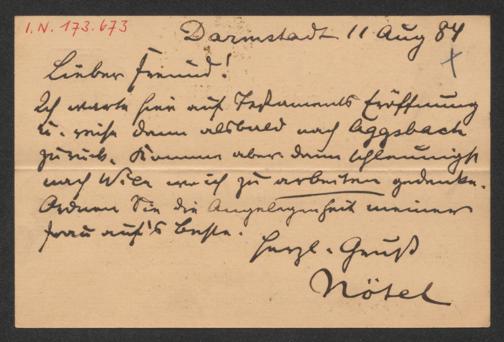 I.N. 173.673
Darmstadt 11 Aug 84
Lieber Freund!
Ich warte hier auf Testaments Eröffnung
u. reise dann alsbald nach Aggsbach
zurück. Komme aber dann schleunigst
nach Wien wo ich zu arbeiten gedenke.
Ordnen Sie die Angelegenheit meiner
Frau auf's beste.
Herzl. Gruß
Nötel